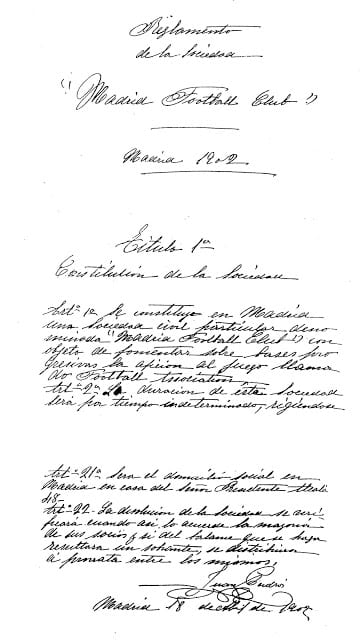 Reglamento
de la Sociedad
"Madrid Football Club"
Madrid 1902
Título 1º
Constitución de la Sociedad
Artº 1º Se constituye en Madrid
una Sociedad civil particular deno
minada "Madrid Football Club" con
objeto de fomentar sobre bases pro
gresivas la afición al juego llama
do Football Association
Artº 2º La duración de esta Sociedad
será por tiempo indeterminado, rigiéndose
Artº 21º Sera el domicilio social en
Madrid en casa del Señor Presidente Alcalá
48
Artº 22. La disolución de la Sociedad se veri
ficará cuando asi lo acuerde la mayoría
de sus socios y si del balance que se haga
resultara un sobrante, se distribuira
á prorrata entre los mismos,
Juan Padrós
Madrid 18 de Abril de 1902